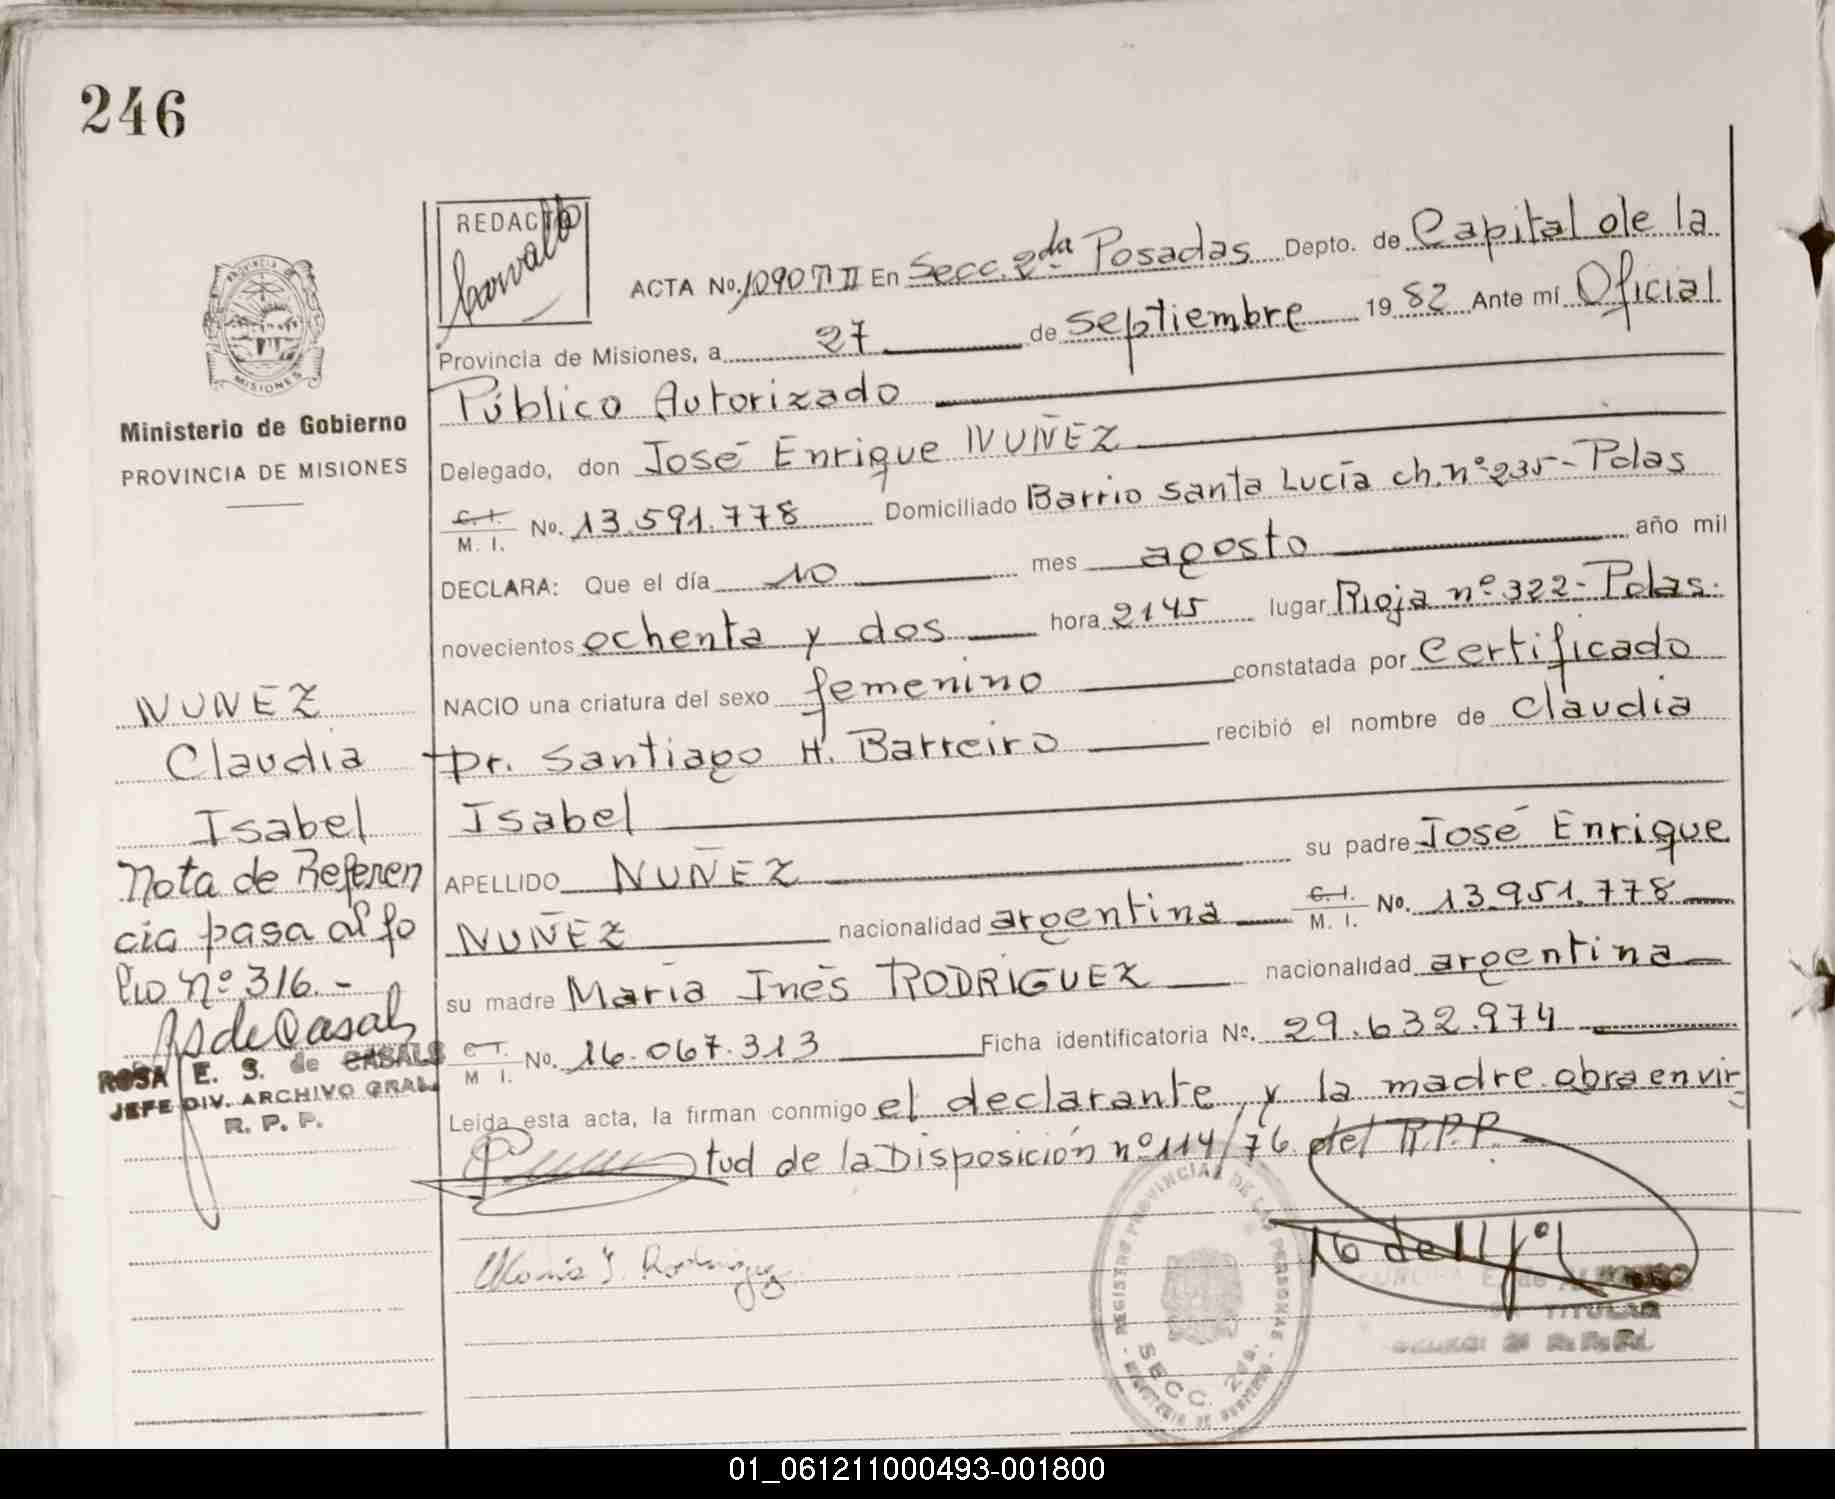 246
REDACTO
Carvallo
PROVINCIA DE
MISIONES
Ministerio de Gobierno
PROVINCIA DE MISIONES
ACTA No. 1090 T II En Secc. 2da Posadas Depto. de Capital de la
Provincia de Misiones, a 27 de septiembre 1982 Ante mí Oficial
Público Autorizado
Delegado, don José Enrique NUÑEZ
C. I. / M. I. No. 13.591.778 Domiciliado Barrio Santa Lucía ch. nº 235 - Pdas
DECLARA: Que el día 10 mes agosto año mil
novecientos ochenta y dos hora 2145 lugar Rioja nº 322 - Pdas.
NACIO una criatura del sexo femenino constatada por Certificado
Dr. Santiago H. Barreiro recibió el nombre de Claudia
Isabel
APELLIDO NUÑEZ su padre José Enrique
NUÑEZ nacionalidad argentina C. I. / M. I. No. 13.951.778
su madre María Inés RODRIGUEZ nacionalidad argentina
C. I. / M. I. No. 16.067.313 Ficha identificatoria No. 29.632.974
Leída esta acta, la firman conmigo el declarante, y la madre obra en vir
tud de la Disposición nº 114/76 del R.P.P.
María I. Rodriguez
NUNEZ
Claudia
Isabel
Nota de Referen
cia pasa al fo
lio nº 316.-
RS de Casals
ROSA E. S. de CASALS
JEFE DIV. ARCHIVO GRAL.
R. P. P.
REGISTRO PROVINCIAL DE LAS PERSONAS
SECC. 2da.
MINISTERIO DE GOBIERNO
TITULAR
01_061211000493-001800